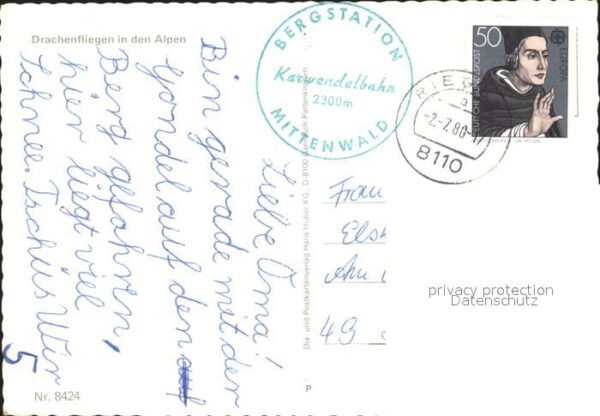 Drachenfliegen in den Alpen
Liebe Oma!
Bin gerade mit der
Gondel auf den
Berg gefahren,
hier liegt viel
Schnee. Tschüs Wir
5
Nr. 8424
BERGSTATION
Karwendelbahn
2300m
MITTENWALD
50
DEUTSCHE BUNDESPOST
EUROPA
-2.-7.80-17
8110
Dia- und Postkartenverlag Hans Huber KG., D 8100 Garmisch-Partenkirchen
Frau
Els
An
49
P
privacy protection
Datenschutz